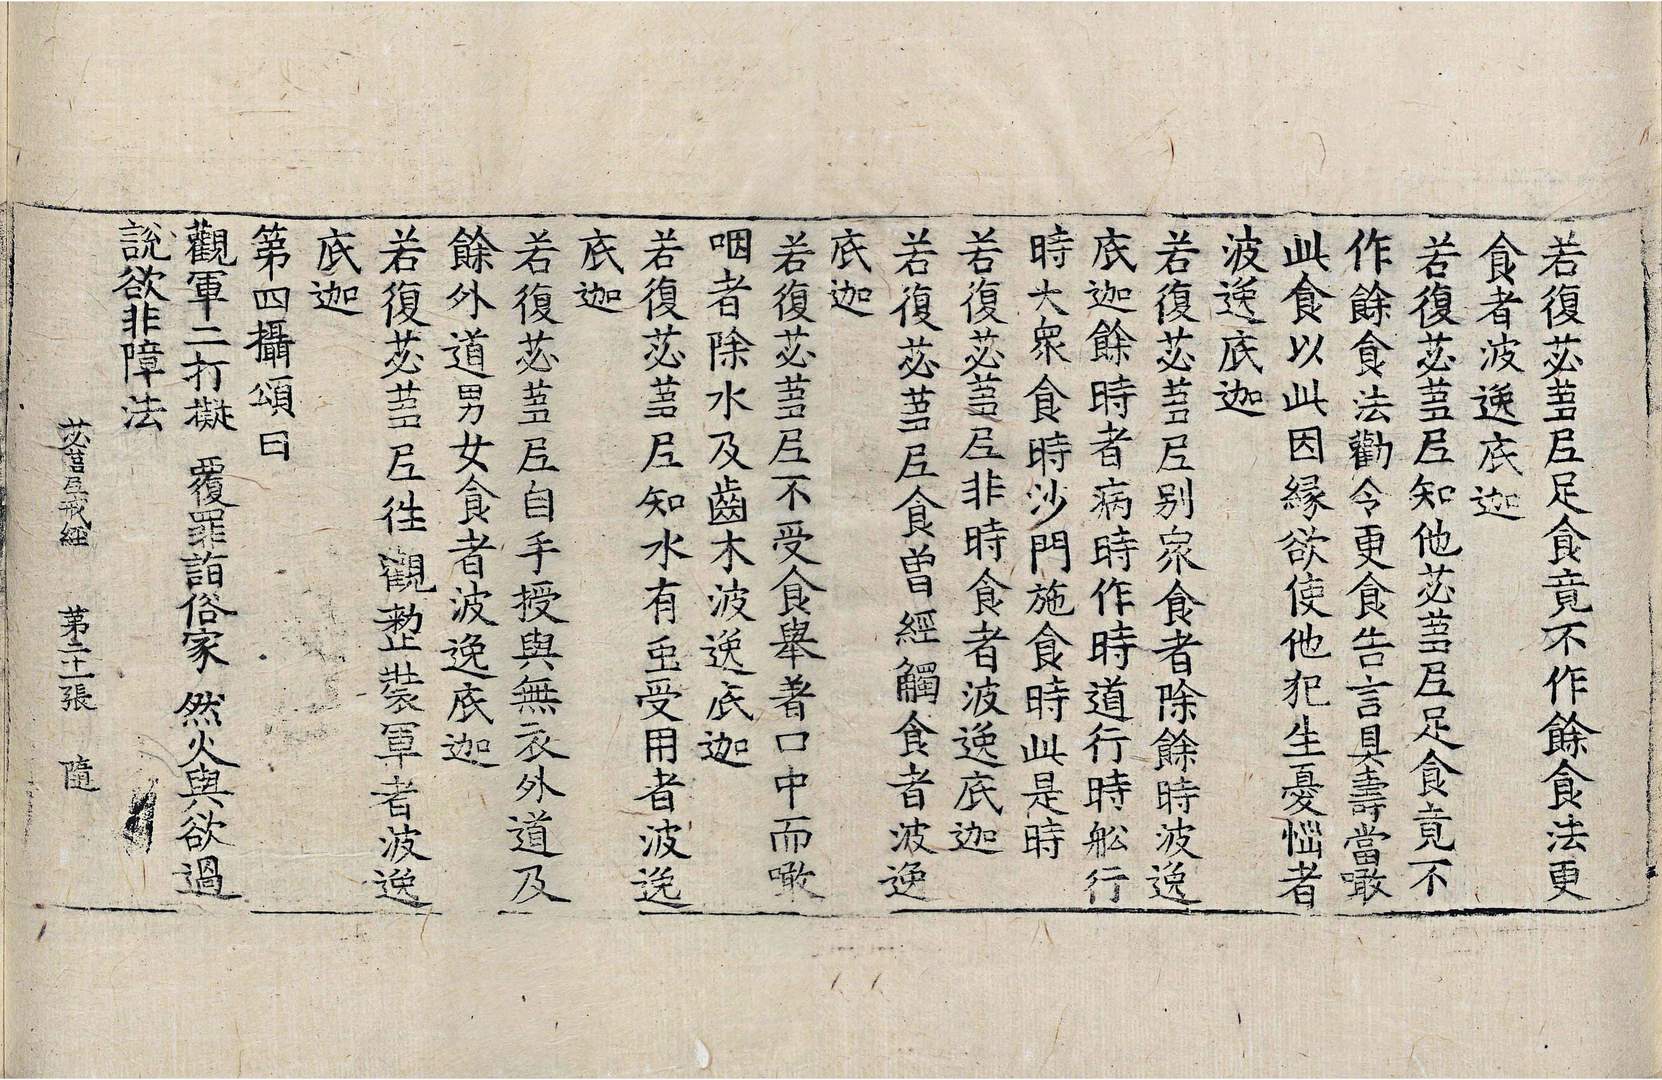 若復苾蒭尼足食竟不作餘食法更
食者波逸底迦
若復苾蒭尼知他苾蒭尼足食竟不
作餘食法勸令更食告言具壽當噉
此食以此因緣欲使他犯生憂惱者
波逸底迦
若復苾蒭尼別衆食者除餘時波逸
底迦餘時者病時作時道行時舩行
時大衆食時沙門施食時此是時
若復苾蒭尼非時食者波逸底迦
若復苾蒭尼食曾經觸食者波逸
底迦
若復苾蒭尼不受食舉著口中而噉
咽者除水及齒木波逸底迦
若復苾蒭尼知水有虫受用者波逸
底迦
若復苾蒭尼自手授與無衣外道及
餘外道男女食者波逸底迦
若復苾蒭尼往觀整裝軍者波逸
底迦
第四攝頌曰
觀軍二打擬 覆罪詣俗家 然火與欲過
說欲非障法
苾蒭尼戒經 第二十一張 隨